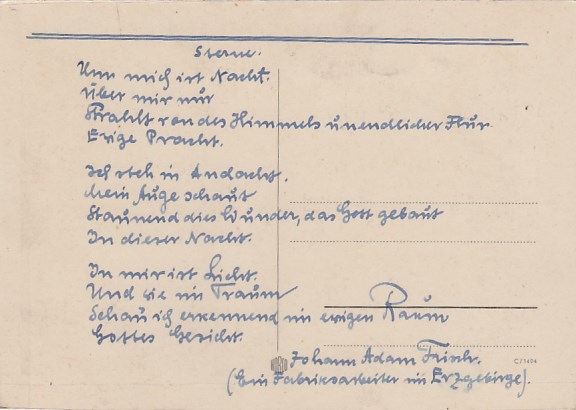 Sterne.
Um mich ist Nacht.
Über mir nur
Strahlt von des Himmels unendlicher Flur
Ewige Pracht.
Ich steh in Andacht.
Mein Auge schaut
Staunend dies Wunder, das Gott gebaut
In dieser Nacht.
In mir ist Licht.
Und wie im Traum
Schau ich erkennend im ewigen Raum
Gottes Gesicht.
Johann Adam Frisch.
C/1494
(Ein Fabriksarbeiter im Erzgebirge).